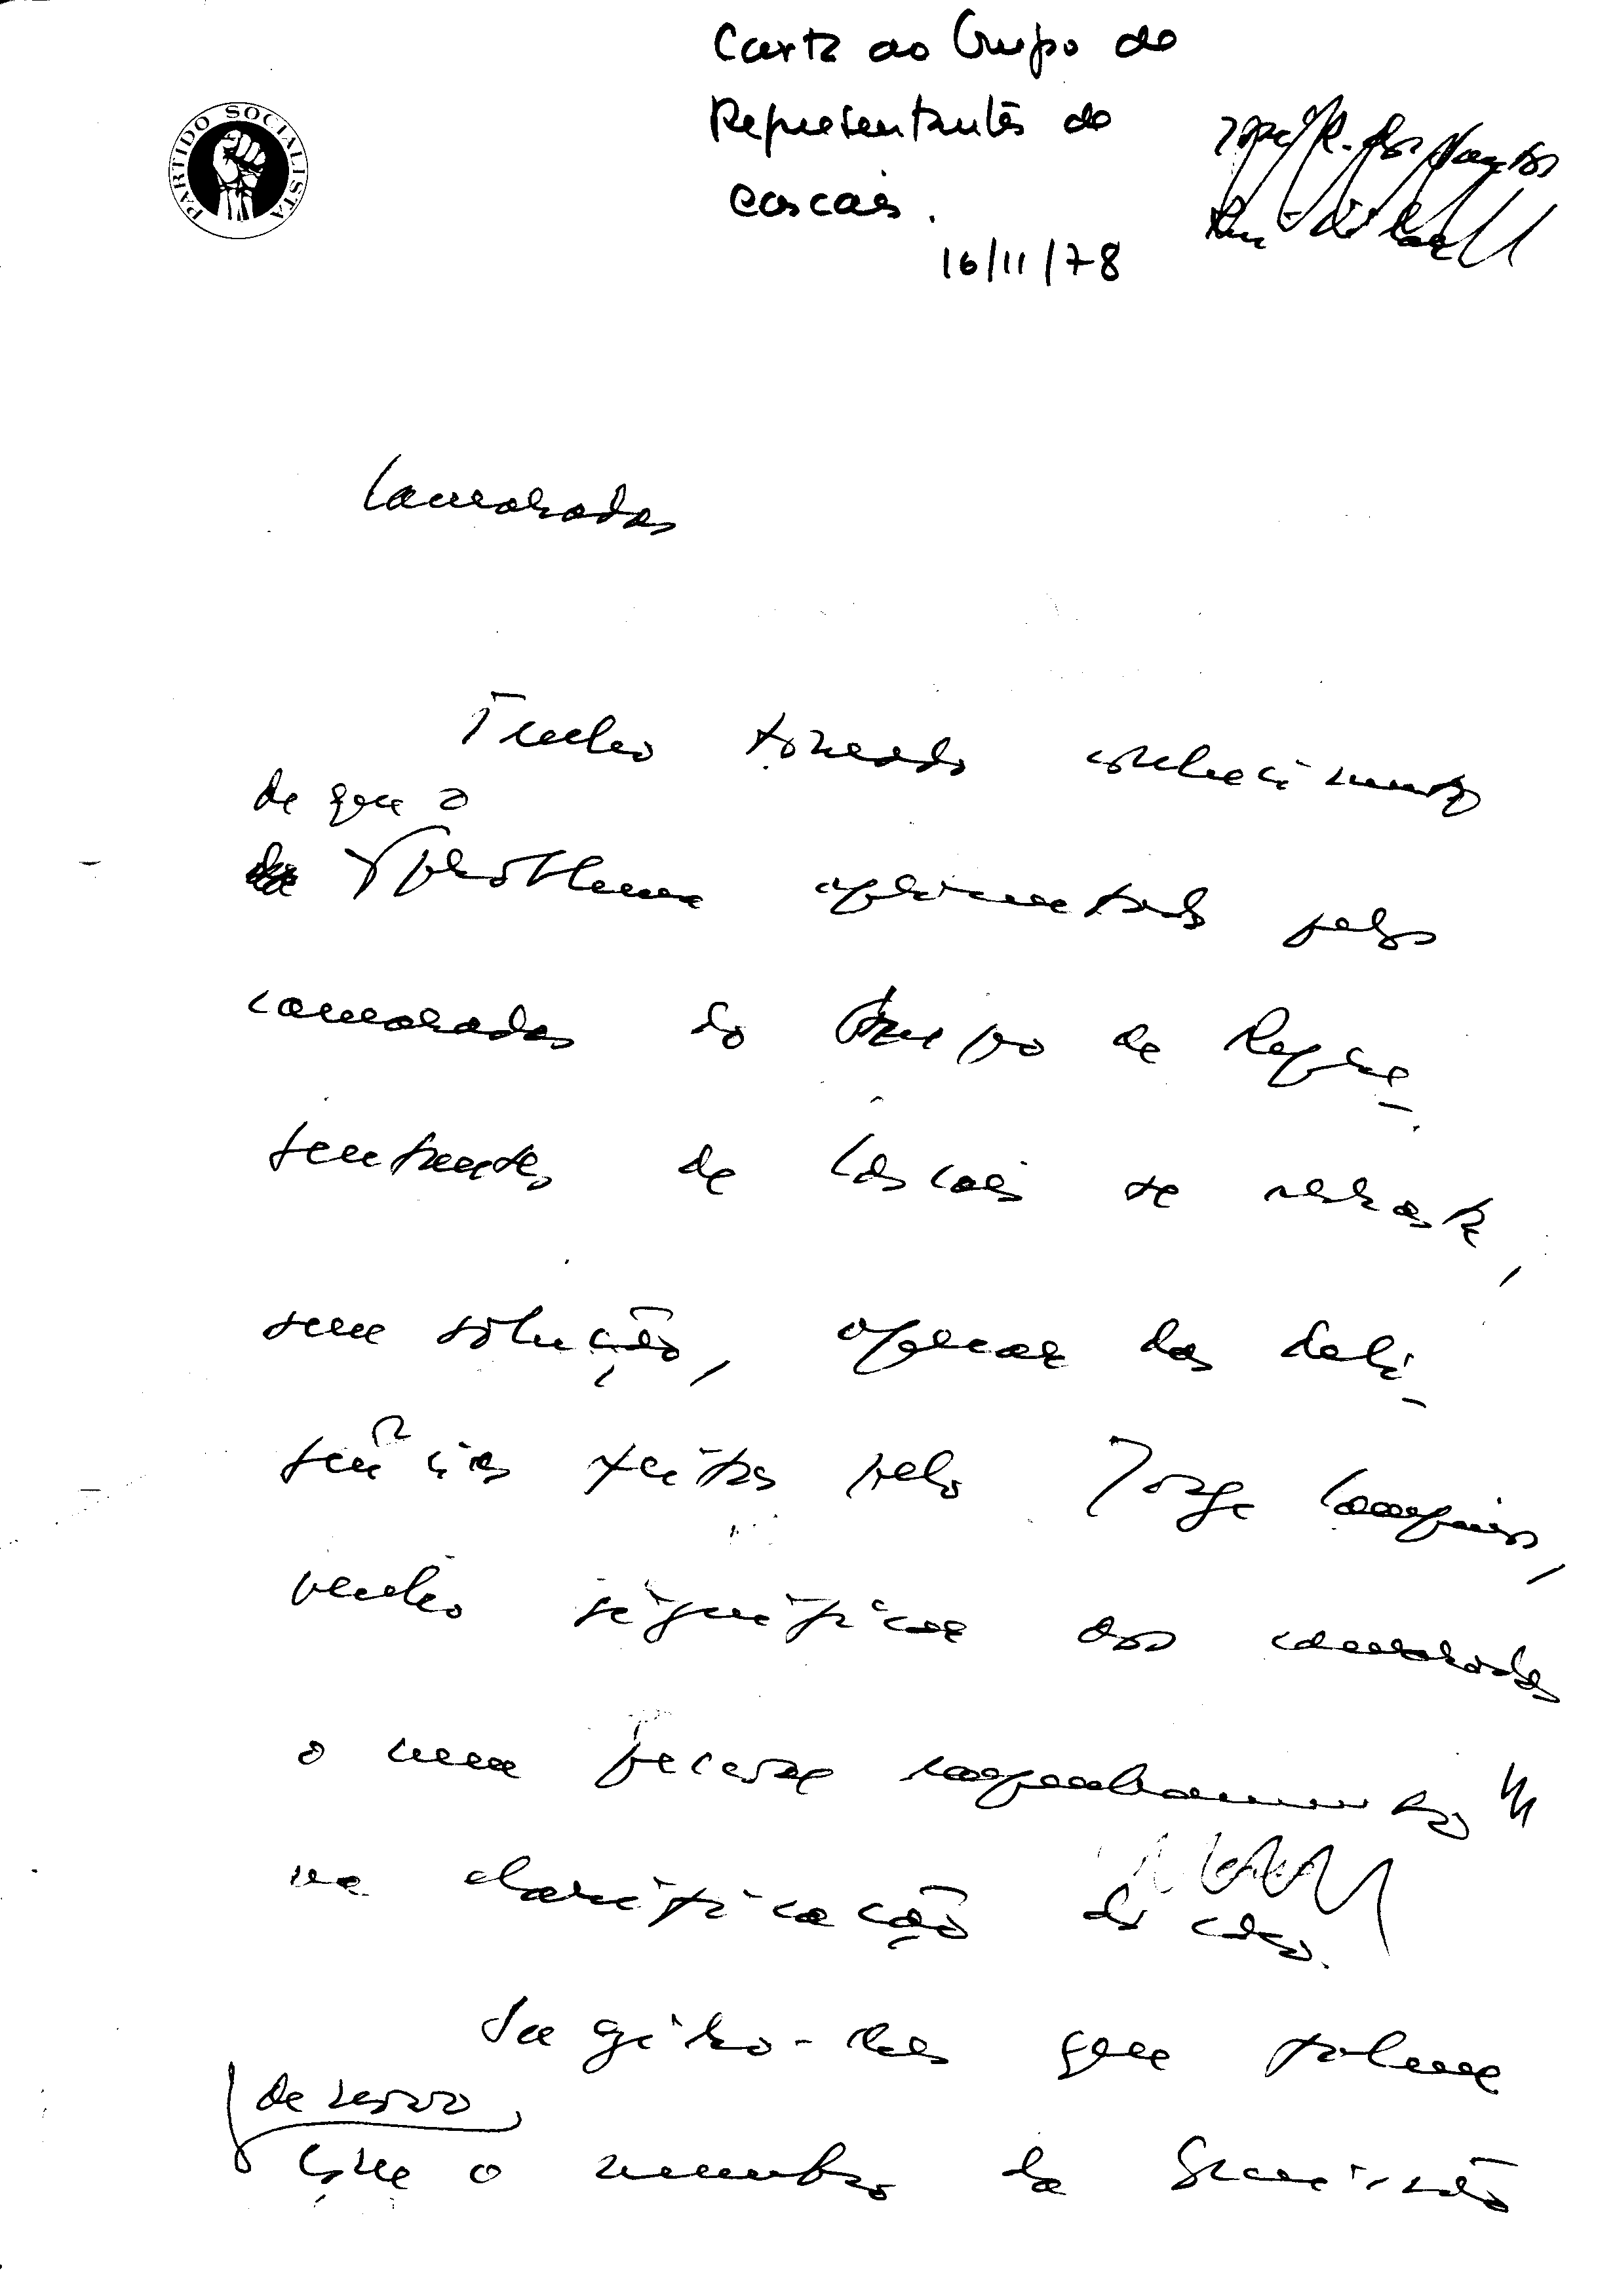 Carta ao Grupo de
Representantes de
Cascais.
16/11/78
PARTIDO SOCIALISTA
Camaradas
Tenho tomado conhecimento
de que o
problema apresentado pelos
camaradas do Grupo de Repre-
sentantes de Cascais se arrasta,
sem solução, apesar das deli-
gências feitas pelo Jorge Campinos,
venho significar aos camaradas
o meu pessoal empenhamento
na clarificação do caso.
Sugiro-lhes que falem
de novo
com o membro da Comissão